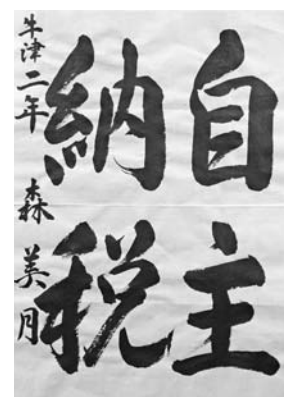 自主
納税
牛津二年 森美月